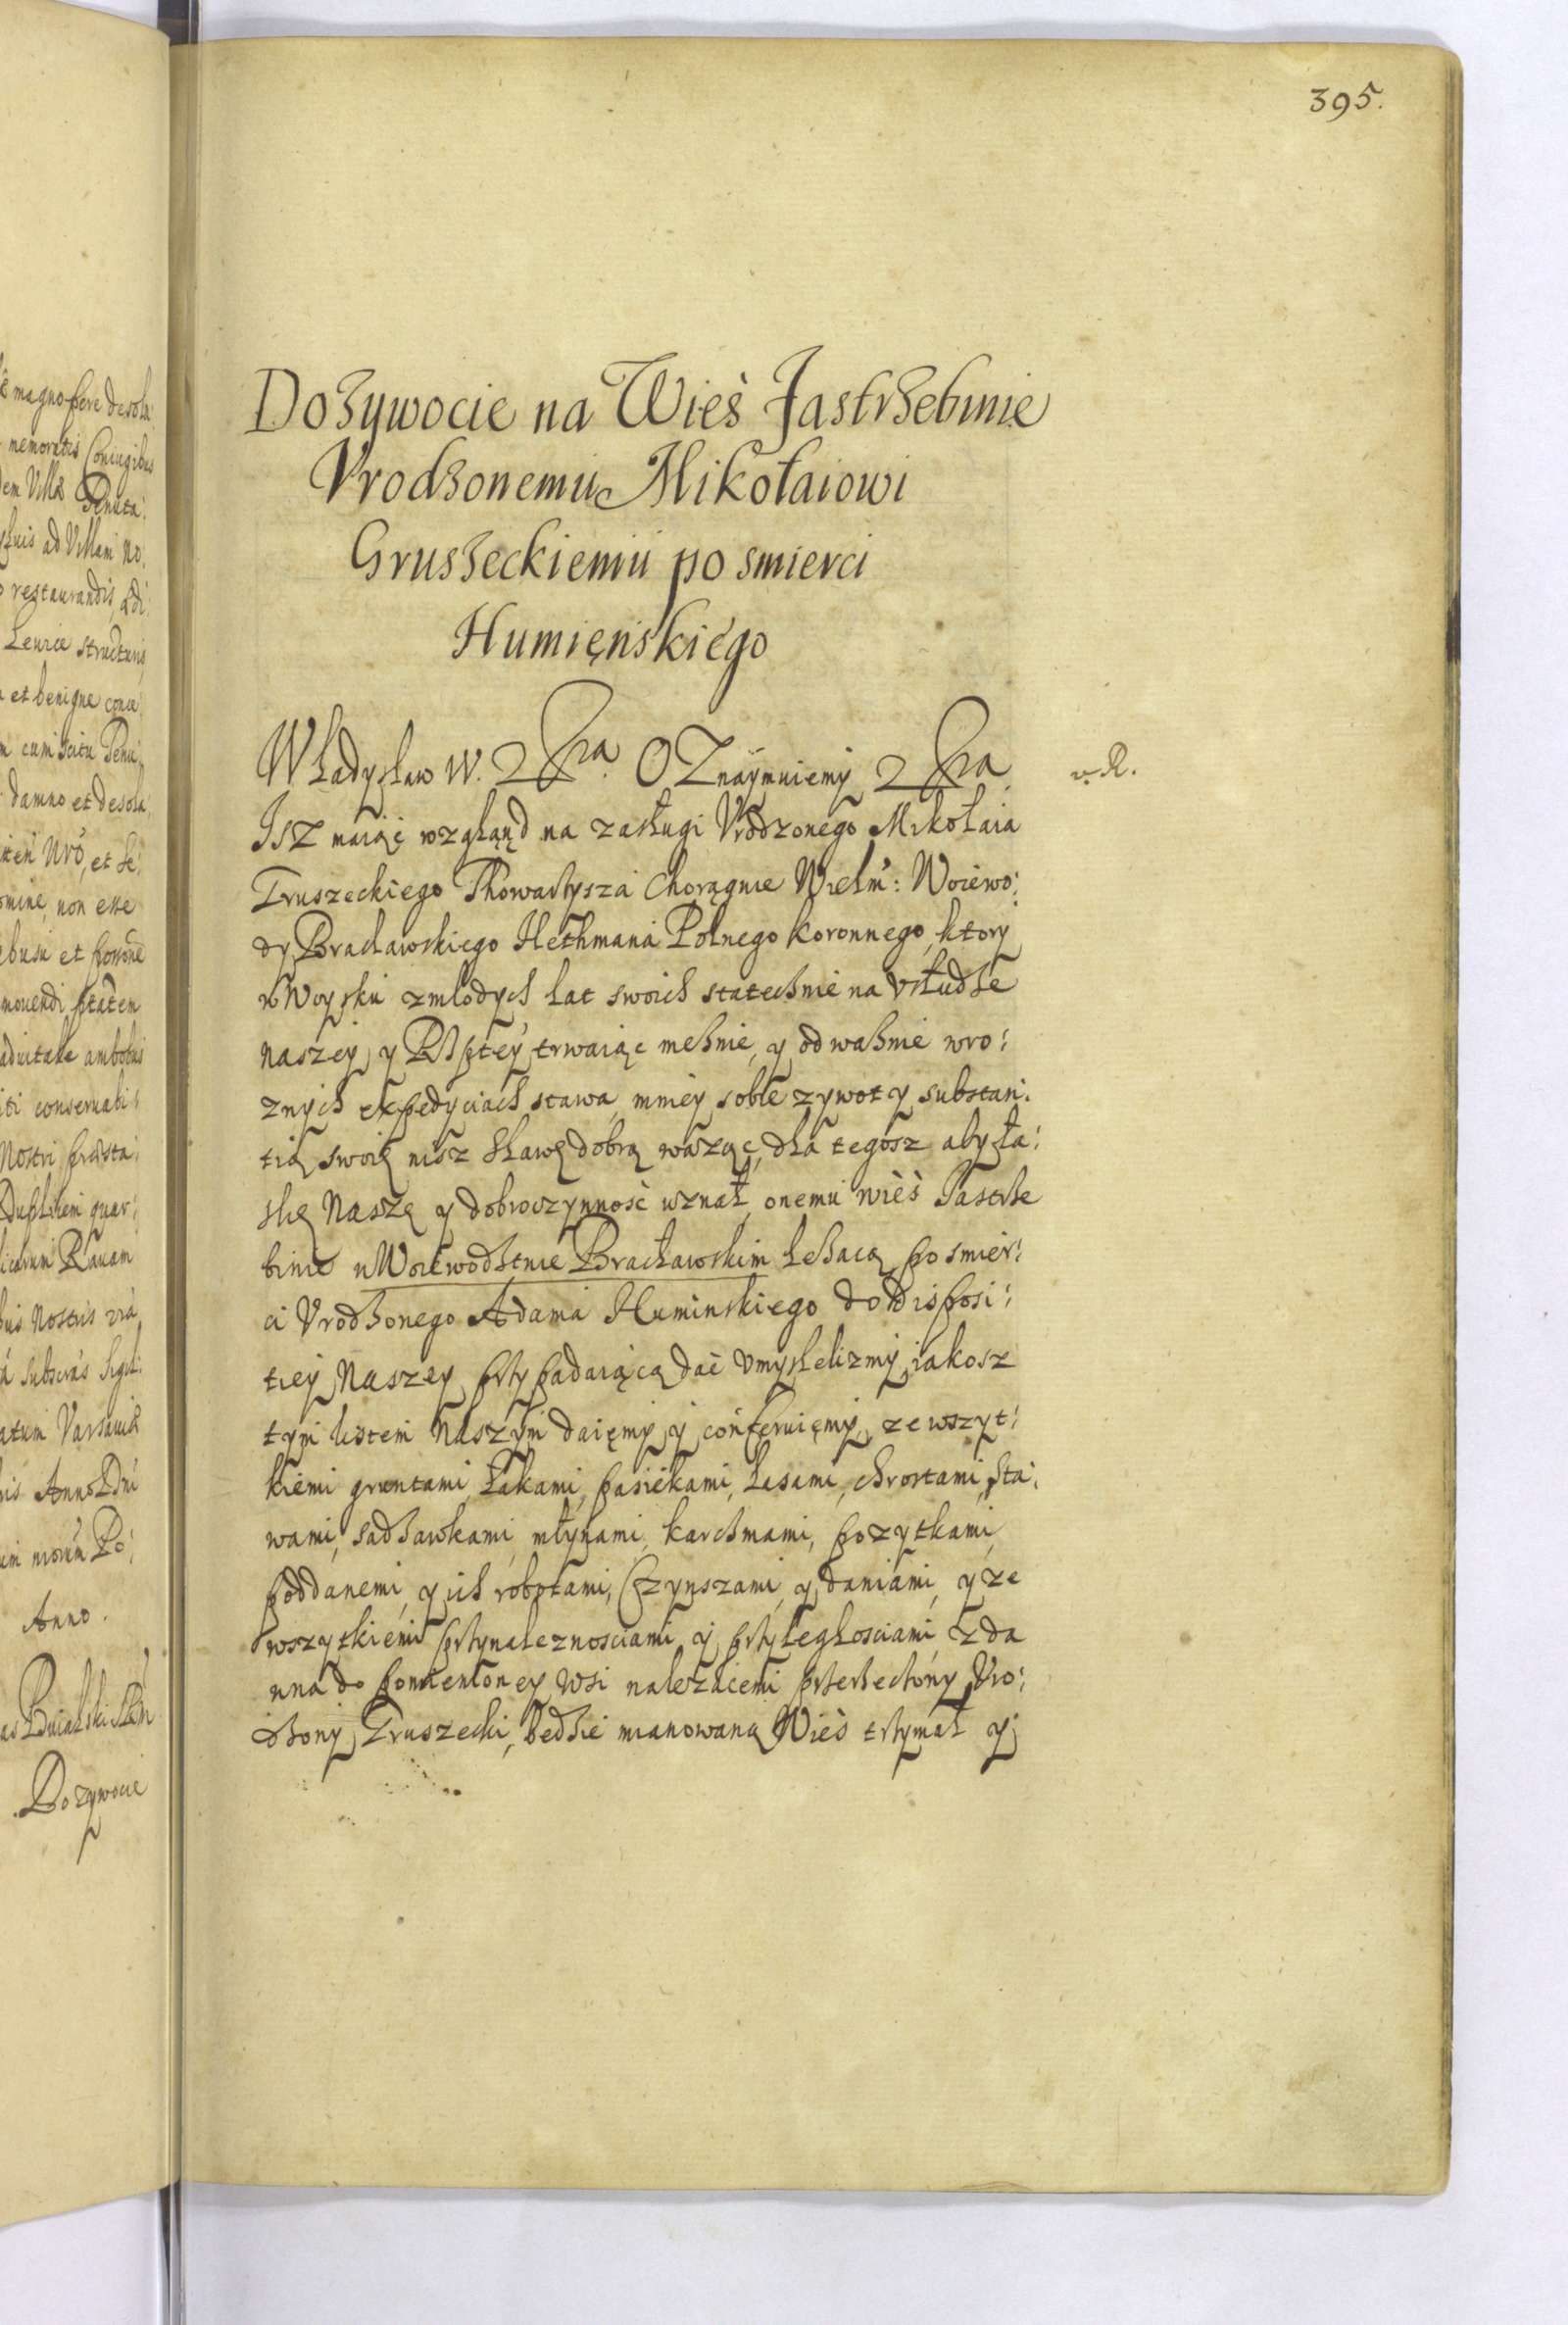 395.
Dożywocie na Wieś Jastrżebinie
Vrodzonemu Mikołaiowi
Gruszeckiemu po smierci
Humięnskiego
Władysław IV. Oznaymuiemy v. R.
Isz maiąc wzgląnd na zasługi Vrodzonego Mikołaia
Gruszeckiego Thowarżysza Chorągnie Wielm: Woiewo:
dy Bracławskiego Hethmana Polnego koronnego, ktory
w Woysku zmłodych lat swoich statecżnie na vsłudże
naszey y Rżptey trwaiąc meżnie, y odważnie wro:
znych expedyciach stawa, mniey sobie zywot y substan:
tią swoię nisz sławę dobrą ważąc, dla tegosz aby ła:
skę Naszę y dobroczynność uznał, onemu wieś Jastrże
binie w Woiewodżtwie Bracławskim leżacą po smier:
ci Vrodżonego Adama Huminskiego do disposi:
tiey Naszey prżypadaiącą dać vmyslelizmy, iakosz
tym listem Naszym daięmy y conferuięmy, ze wszyt:
kiemi gruntami, łakami, pasiekami, lasami, chrostami, sta:
wami, sadżawkami, młynami, karcżmami, pozytkami,
poddanemi y ich robotami, Czynszami y daniami, y ze
wszytkiemi prżynaleznosciami y prżyległosciami z da
wna do pomienioney wsi nalezacemi prżerżecżony Vro:
dżony Gruszecki, będżie mianowaną Wieś trżymał y
memoratis Coniugibus
ad Villam No:
restaurandis, ædi:
structuris
et benigne conce
damno et desola
et se:
non esse
Nostri præsta:
Rauam
Anno Dni
Anno.
Dozywocie